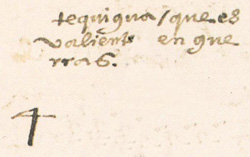 tequigua / que es
valiente en gue
rras.
4